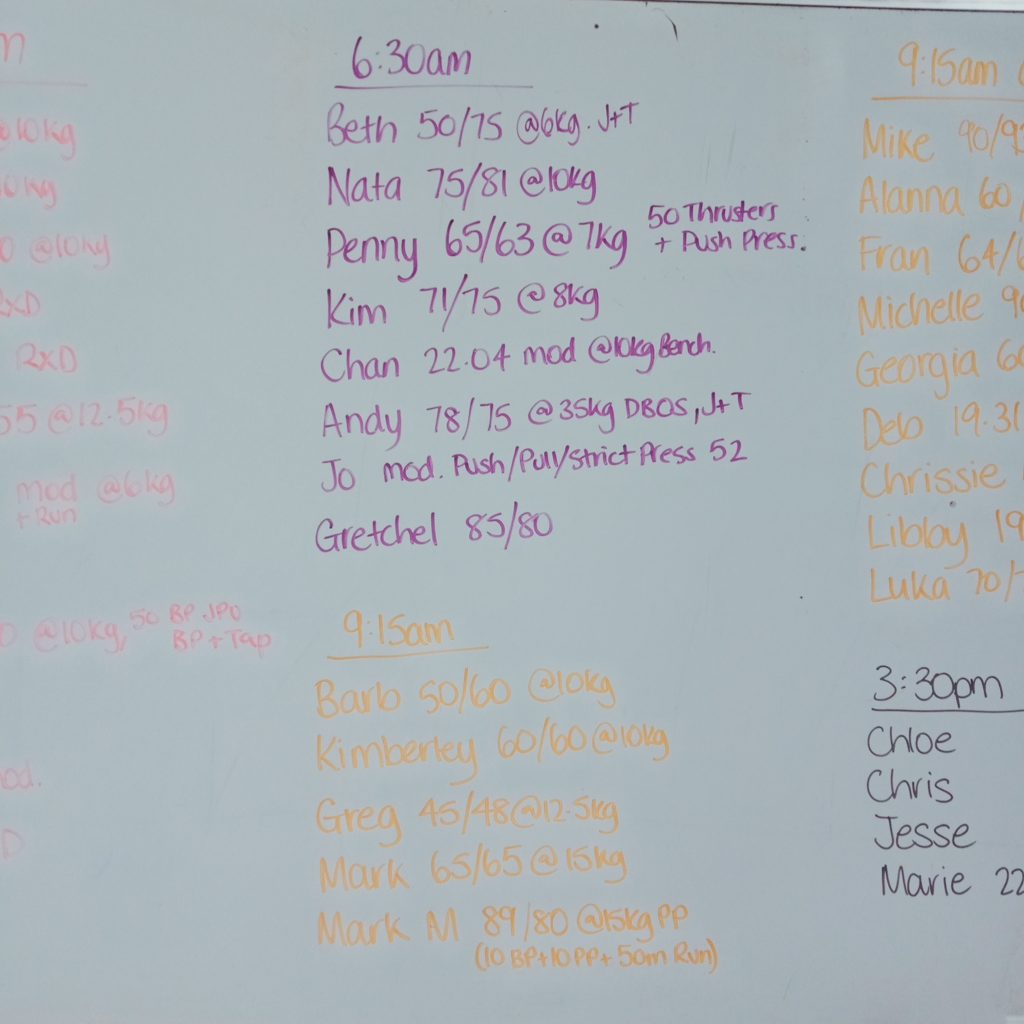 @10kg
@10kg
RXD
RXD
55 @12.5kg
mod @6kg
+ Run
@10kg, 50 BP JPO
BP + Tap
6:30am
Beth 50/75 @6kg. J+T
Nata 75/81 @10kg
Penny 65/63 @ 7kg 50 Thrusters
+ Push Press.
Kim 71/75 @ 8kg
Chan 22.04 mod @10kg Bench.
Andy 78/75 @ 35kg DBOS, J+T
Jo mod. Push/Pull/Strict Press 52
Gretchel 85/80
9:15am
Barb 50/60 @10kg
Kimberley 60/60 @10kg
Greg 45/48 @12.5kg
Mark 65/65 @ 15kg
Mark M 89/80 @15kg PP
(10 BP + 10 PP + 50m Run)
9:15am
Mike 90/9
Alanna 60
Fran 64/6
Michelle
Georgia
Deb 19.31
Chrissie
Libby 19
Luka 70/
3:30pm
Chloe
Chris
Jesse
Marie 22